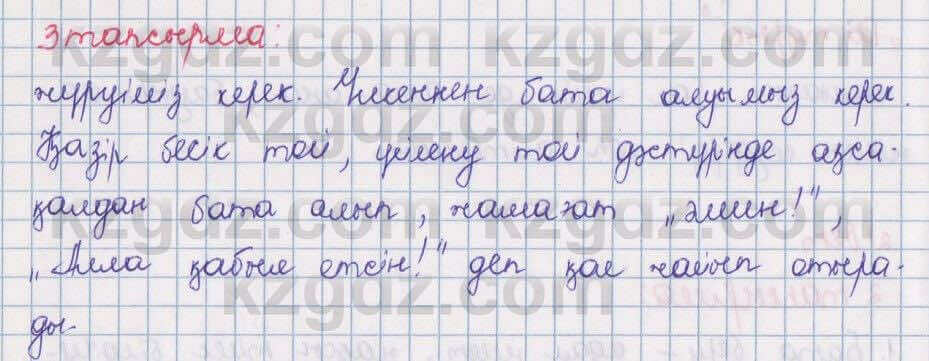 3 тапсырма:
жүруіміз керек. Үлкеннен бата алуымыз керек.
Қазір бесік той, үйлену той дәстүрінде ақса-
қалдан бата алып, жамағат „әмин!",
„Алла қабыл етсін!" деп қол жайып отыра-
ды.
kzgdz.com